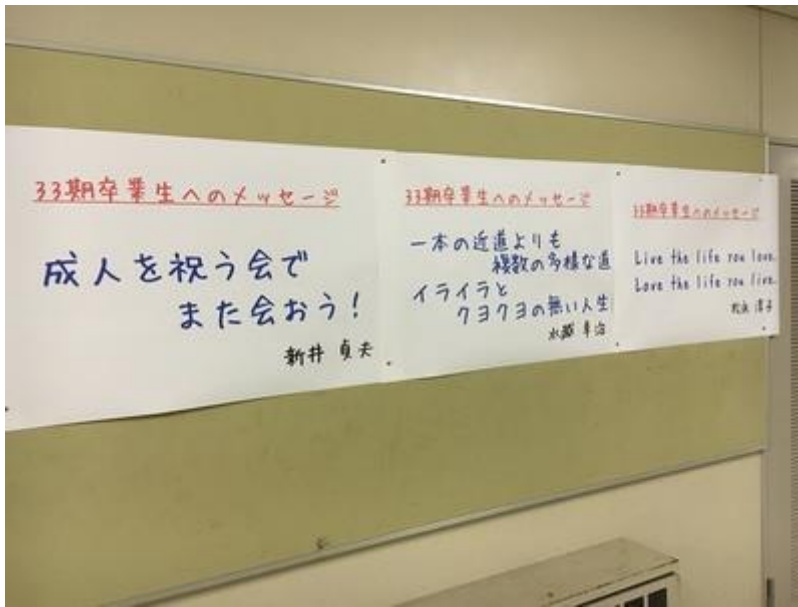 33期卒業生へのメッセージ
成人を祝う会で
また会おう!
新井 貞夫
33期卒業生へのメッセージ
一本の近道よりも
複数の多様な道
イライラと
クヨクヨの無い人生
33期卒業生へのメッセージ
Live the life you love.
Love the life you live.